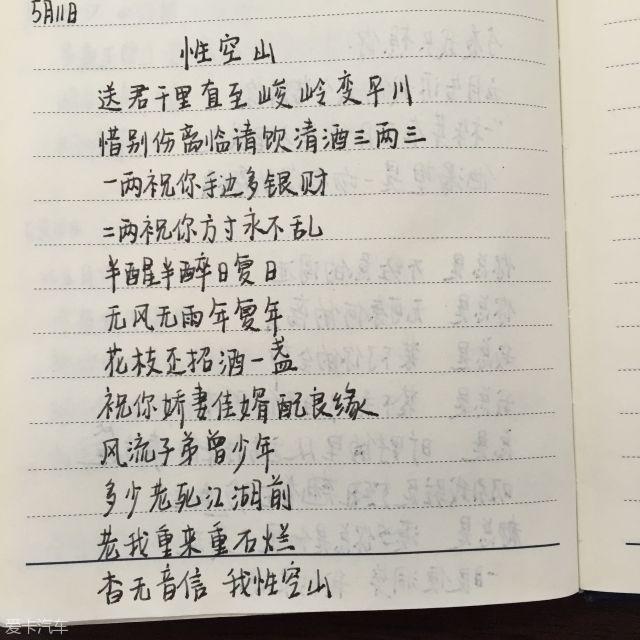 5月11日
性空山
送君千里直至峻岭变平川
惜别伤离临请饮清酒三两三
一两祝你手边多银财
二两祝你方寸永不乱
半醒半醉日复日
无风无雨年复年
花枝还招酒一盏
祝你娇妻佳婿配良缘
风流子弟曾少年
多少老死江湖前
老我重来重石烂
杳无音信 我性空山
爱卡汽车